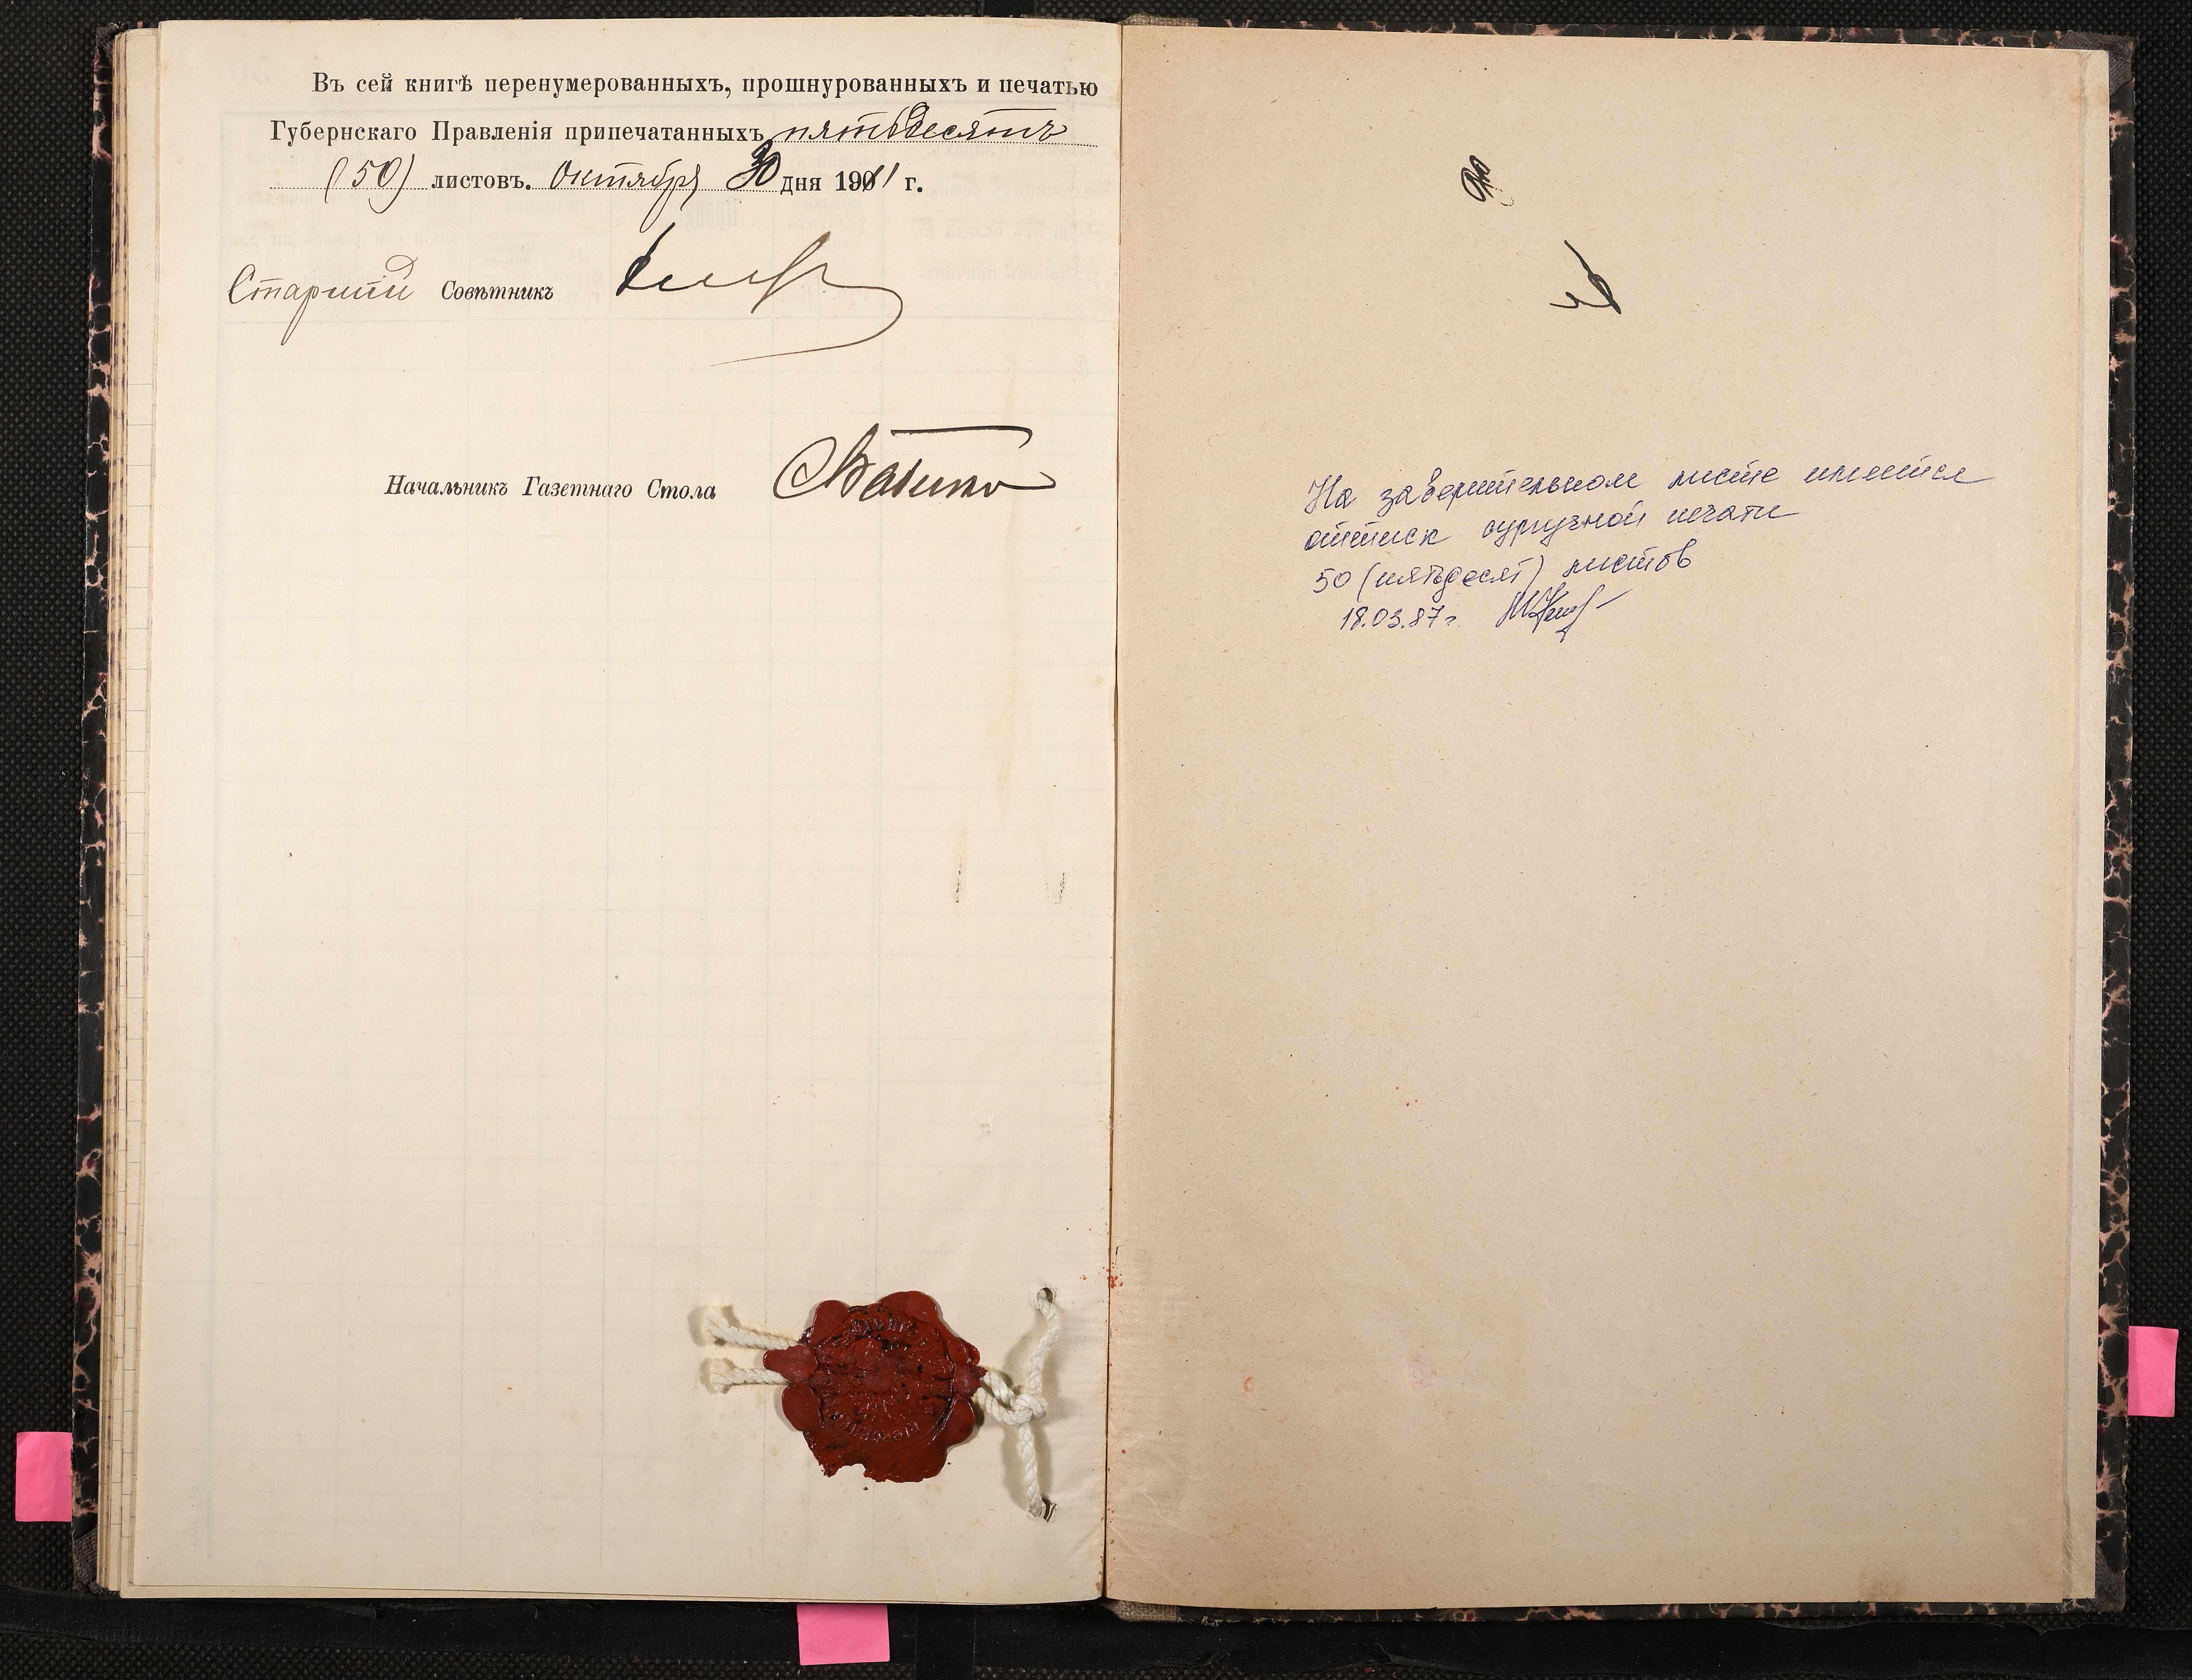 Въ сей книгѣ перенумерованныхъ, прошнурованныхъ и печатью
Губернскаго Правленія припечатанныхъ пятьдесятъ
(50) листовъ. Октября 30 дня 1911 г.
Старшій Совѣтникъ
Начальникъ Газетнаго Стола
На заверительном листе имеется
оттиск сургучной печати
50 (пятьдесят) листов
18.03.87г.